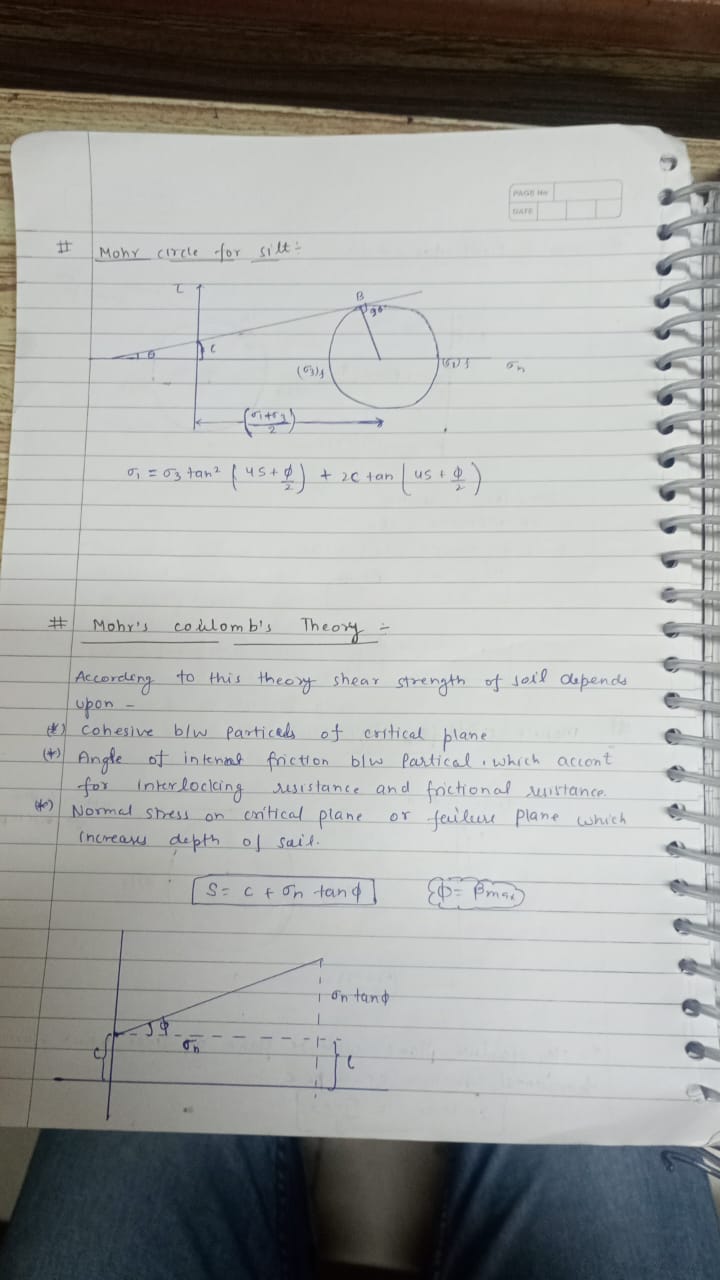 PAGE No
DATE
# Mohr circle for silt :-
τ
B
90°
θ
c
(σ3)f
(σ1)f
σn
(σ1+σ3/2)
σ1 = σ3 tan² (45 + φ/2) + 2c tan (45 + φ/2)
# Mohr's coulomb's Theory :-
According to this theory shear strength of soil depends
upon -
(*) cohesive b/w particels of critical plane
(*) Angle of internal friction b/w Partical, which accont
for interlocking resistance and frictional resistance.
(*) Normal stress on critical plane or failure plane which
increases depth of sail.
S = c + σn tanφ
φ = βmax
σn tanφ
φ
σn
c
c